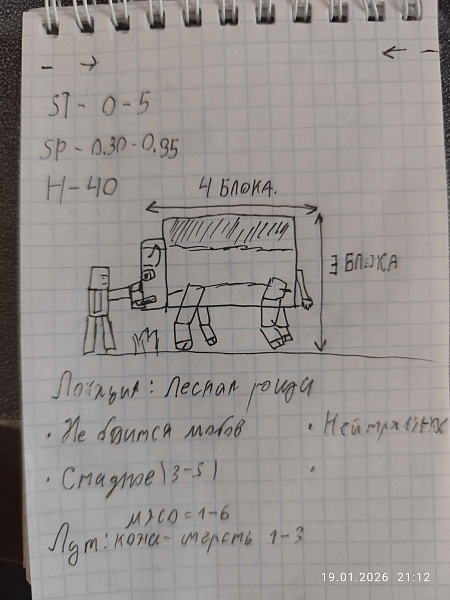 - →
← -
ST - 0-5
SP - 0.30-0.35
H-40
4 БЛОКА.
3 БЛОКА
Локация: Лесная роща
· Не боится мобов
· Нейтральное
· Стадное (3-5)
мясо = 1-6
Лут: кожа - шерсть 1-3
19.01.2026 21:12